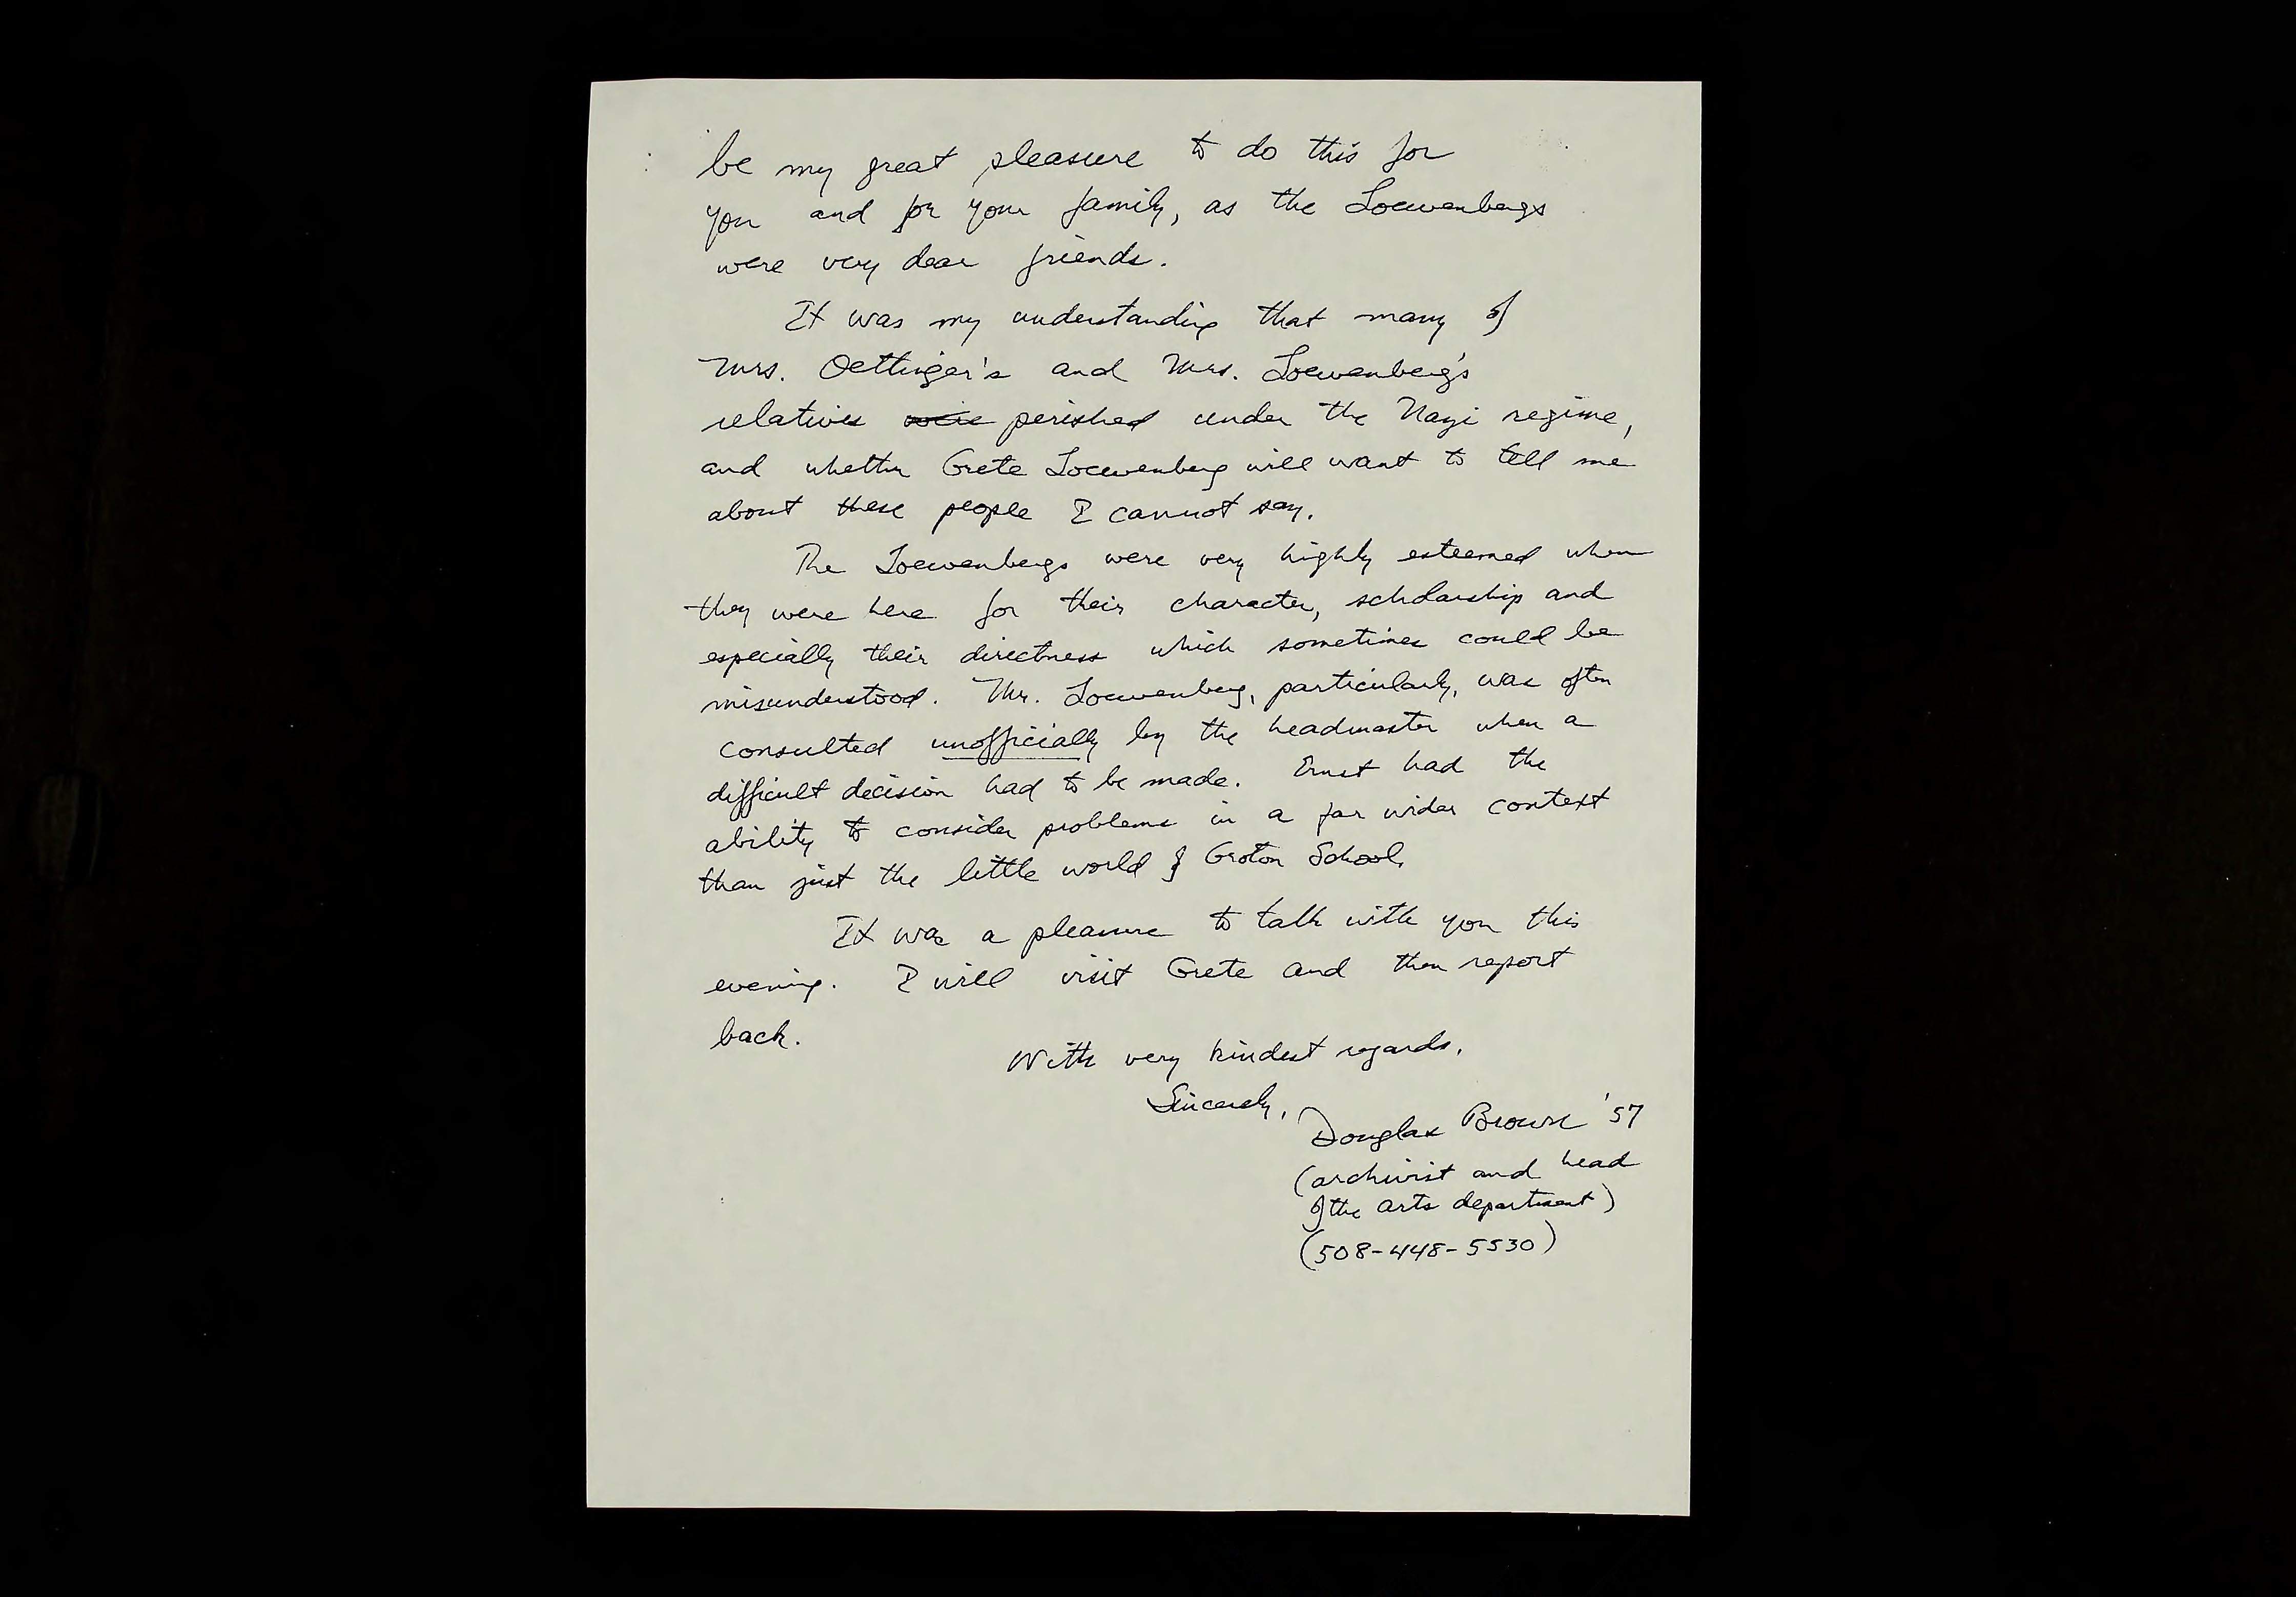 be my great pleasure to do this for
you and for your family, as the Loewenbergs
were very dear friends.
It was my understanding that many of
Mrs. Oettinger's and Mrs. Loewenberg's
relatives were perished under the Nazi regime,
and whether Grete Loewenberg will want to tell me
about these people I cannot say.
The Loewenbergs were very highly esteemed when
they were here for their character, scholarship and
especially their directness which sometimes could be
misunderstood. Mr. Loewenberg, particularly, was often
consulted unofficially by the headmaster when a
difficult decision had to be made. Ernst had the
ability to consider problems in a far wider context
than just the little world of Groton School.
It was a pleasure to talk with you this
evening. I will visit Grete and then report
back.
With very kindest regards.
Sincerely,
Douglas Brown '57
(archivist and head
of the arts department)
(508-448-5530)